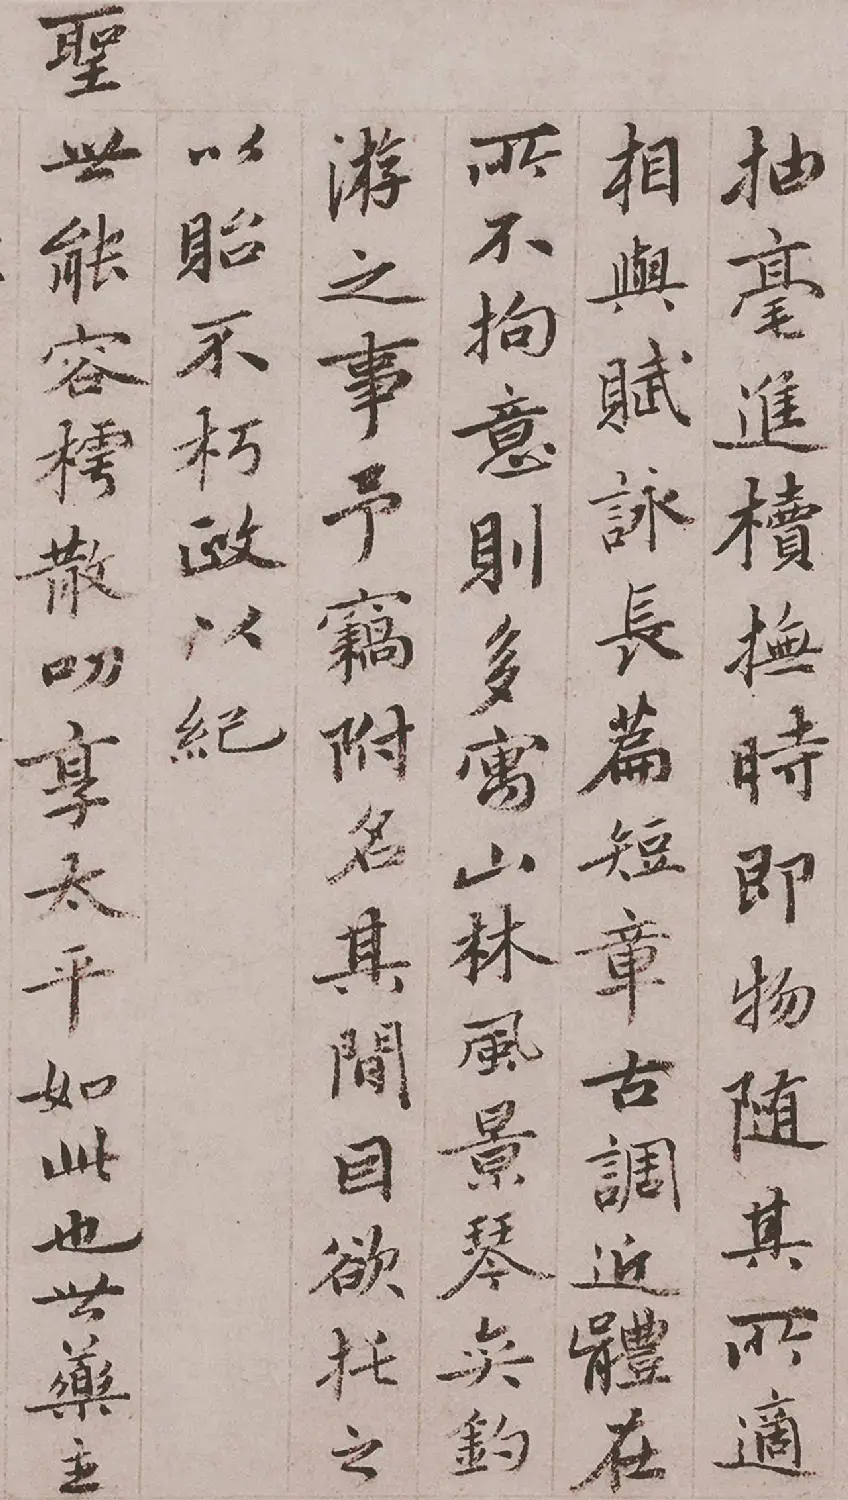 抽毫進牘撫時即物随其所適
相與賦詠長篇短章古調近體在
所不拘意則多寓山林風景琴奕釣
游之事予竊附名其間目欲托之
以貽不朽政以紀
聖世能容樗散叨享太平如此也世藥主